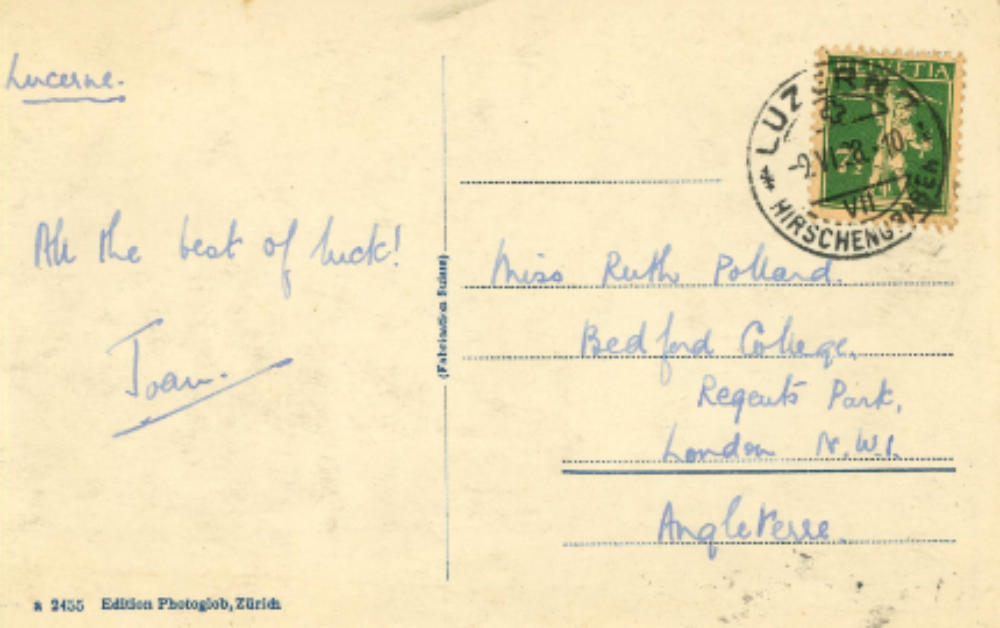 Lucerne.
All the best of luck!
Joan.
HELVETIA
7½
LUZERN 7
-9.VI.28.-10
VII
HIRSCHENGRABEN
(Fabrication Suisse)
Miss Ruth Pollard.
Bedford College,
Regents Park,
London N.W.1.
Angleterre.
2455 Edition Photoglob, Zürich